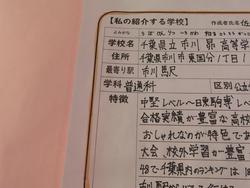 【私の紹介する学校】
作成者氏名
ふりがな
学校名 千葉県立市川 昴 高等学
住所 千葉県市川市東国分1丁目1
最寄り駅 市川駅
学科 普通科 区別 公立
特徴 中堅レベル〜日東駒専レ
合格実績が豊富な高校
おしゃれなのが特色で
大会、校外学習が豊富
48で千葉県内のランキングは
市川駅から